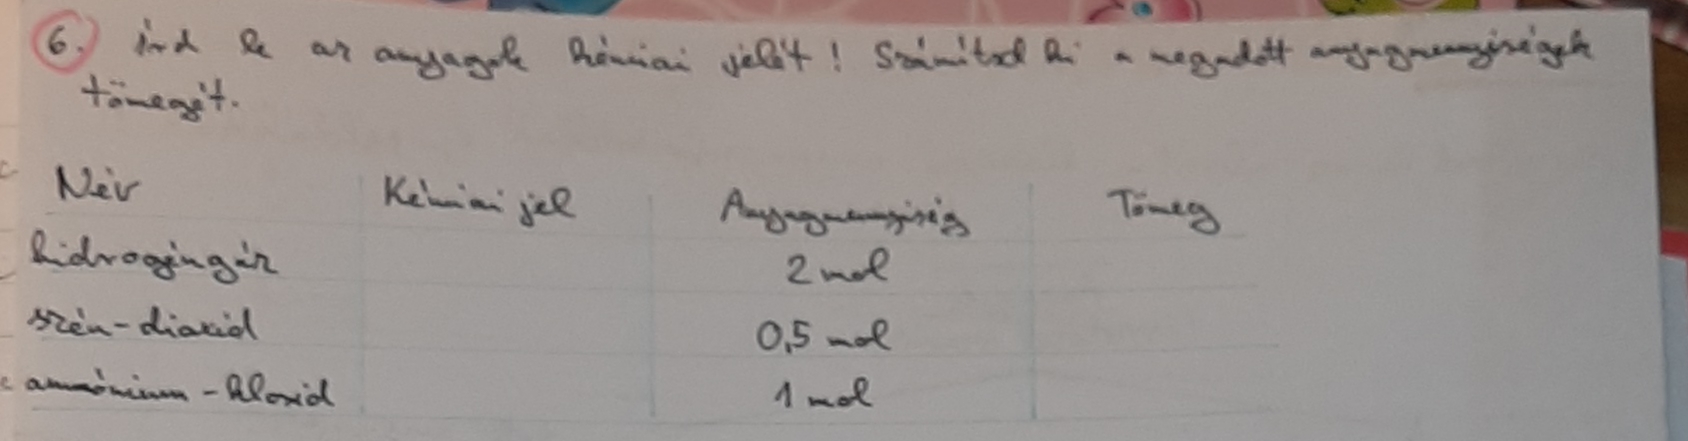 6. Írd le az anyagok kémiai jelét! Számítsd ki a megadott anyagmennyiségek
tömegét.
Név Kémiai jel Anyagmennyiség Tömeg
hidrogéngáz 2 mol
szén-dioxid 0,5 mol
ammónium-klorid 1 mol